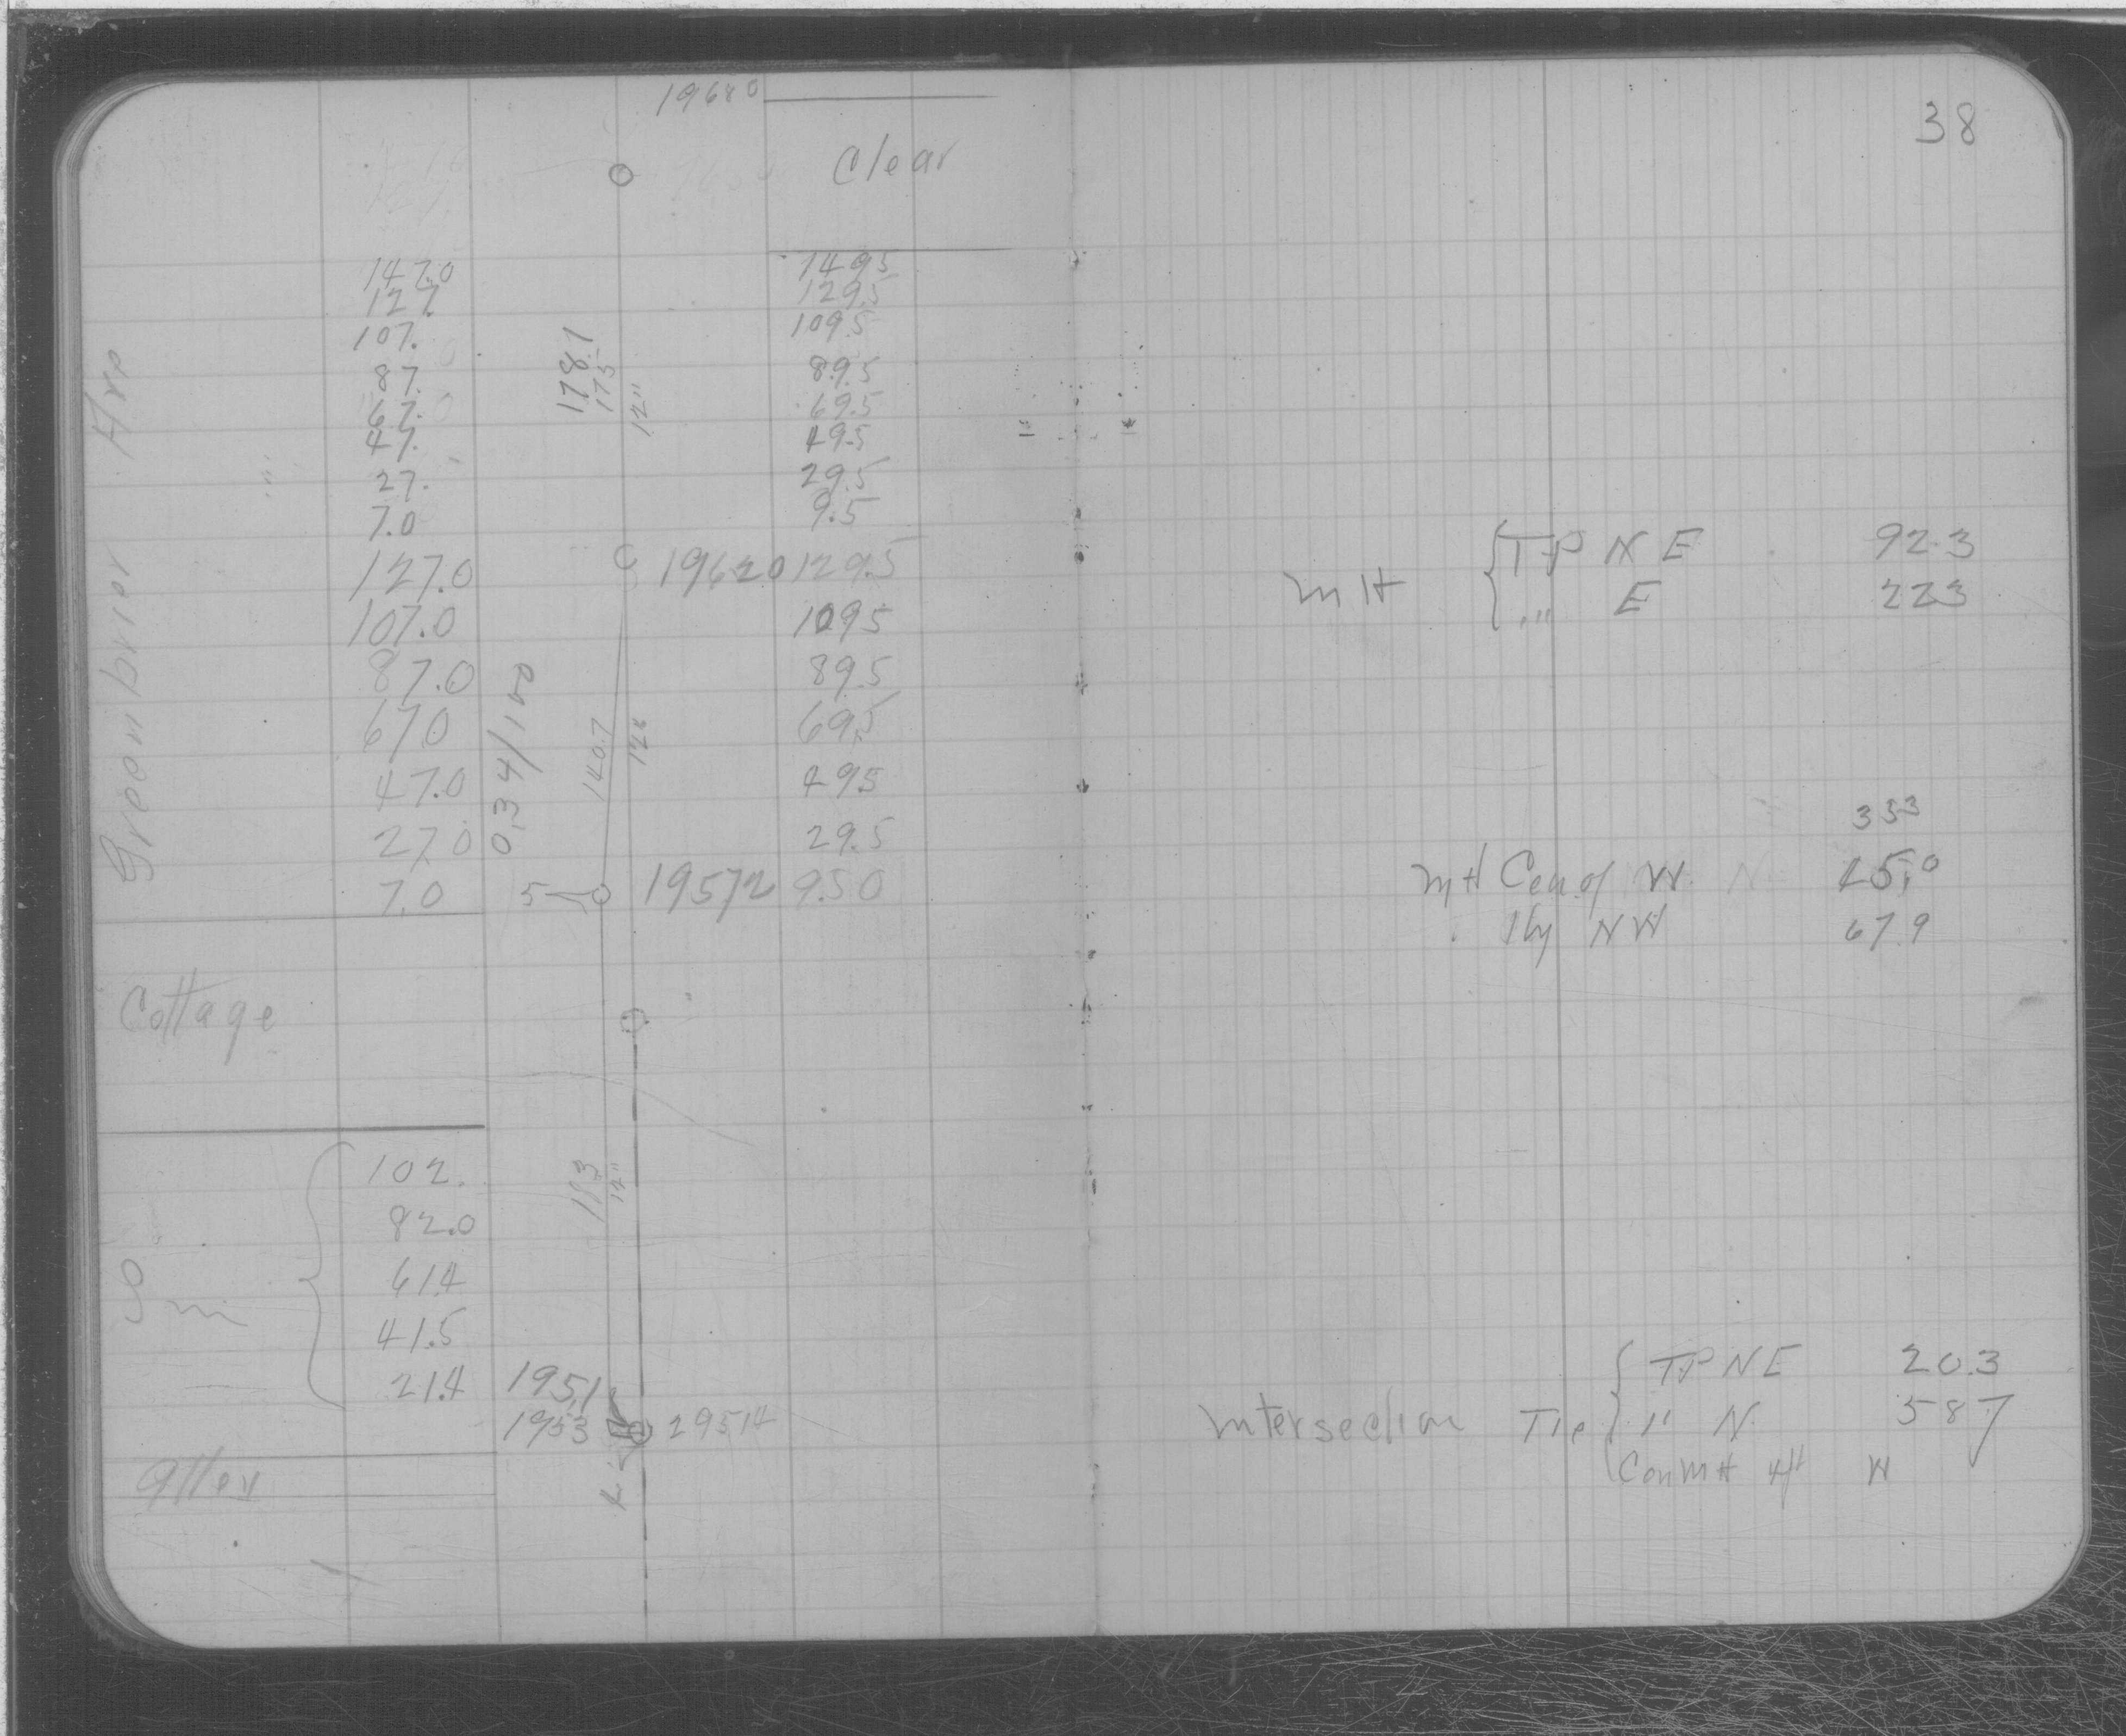 38
19680
Clear
147.0 149.5
127. 129.5
107. 109.5
87. 178.1 89.5
67. 175 69.5
47. 12" 49.5
27. 29.5
7.0 9.5
127.0 19620 129.5
107.0 109.5
87.0 89.5
67.0 69.5
47.0 0.34/100 140.7 12" 49.5
27.0 29.5
7.0 5 19572 9.50
Greenbrier Ave
Cottage
102. 113
82.0 12"
61.4
41.5
21.4 195.1
1953 29514
Alley
MH TP N E 92.3
" E 223
333
MH Cen of W. N 45.0
Hy NW 67.9
Intersection Tie TP NE 20.3
" N. 587
Con MH 4ft W